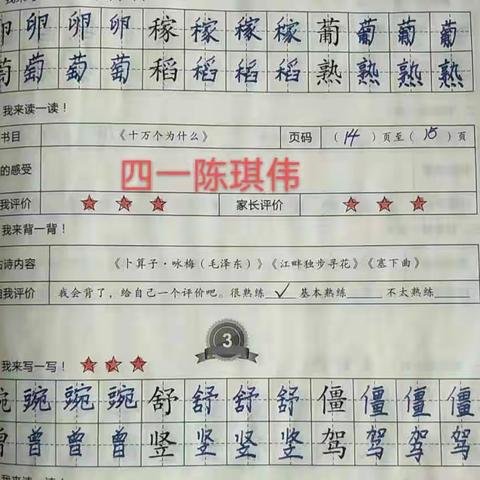 卵 卵 卵 卵 稼 稼 稼 稼 葡 葡 葡 葡
萄 萄 萄 萄 稻 稻 稻 稻 熟 熟 熟 熟
我来读一读！
书目 《十万个为什么》 页码 （14）页至（15）页
的感受
四一陈琪伟
我评价 家长评价
我来背一背！
古诗内容 《卜算子·咏梅（毛泽东）》《江畔独步寻花》《塞下曲》
自我评价 我会背了，给自己一个评价吧。很熟练 ✓ 基本熟练 不太熟练
3
我来写一写！
豌 豌 豌 豌 舒 舒 舒 舒 僵 僵 僵 僵
曾 曾 曾 曾 竖 竖 竖 竖 驾 驾 驾 驾